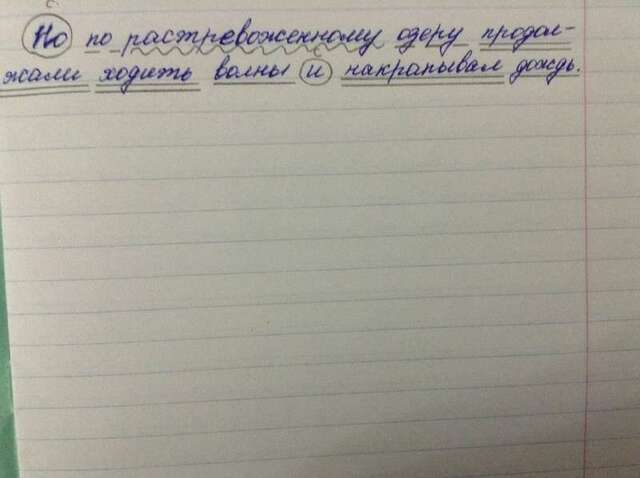 с
Но по растревоженному озеру продол-
с
жали ходить волны и накрапывал дождь.